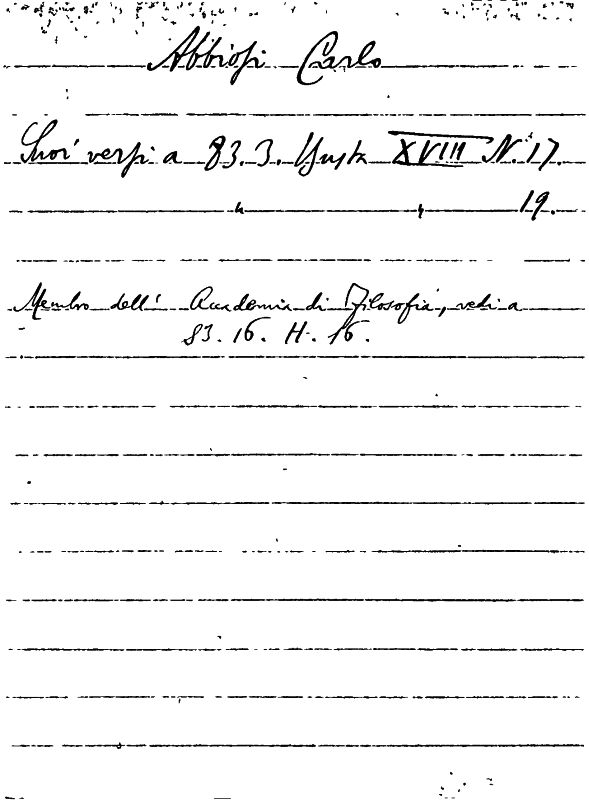 Abbiosi Carlo
Suoi versi a 83. 3. Busta XVIII N. 17.
" " 19.
Membro dell' Accademia di Filosofia, vedi a
83. 16. H. 16.